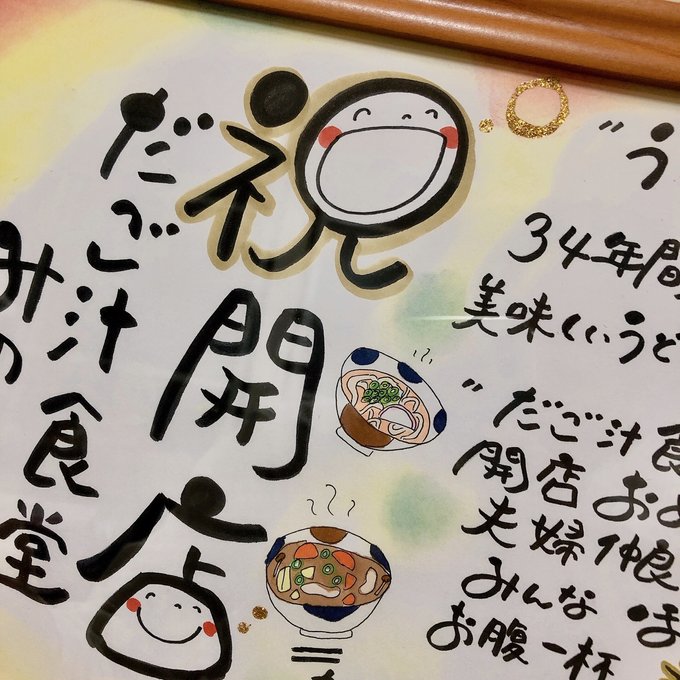 祝
開店
だご汁食堂
みの
"う
34年間
美味しいうど
"だご汁食
開店およ
夫婦仲良
みんなほ
お腹一杯